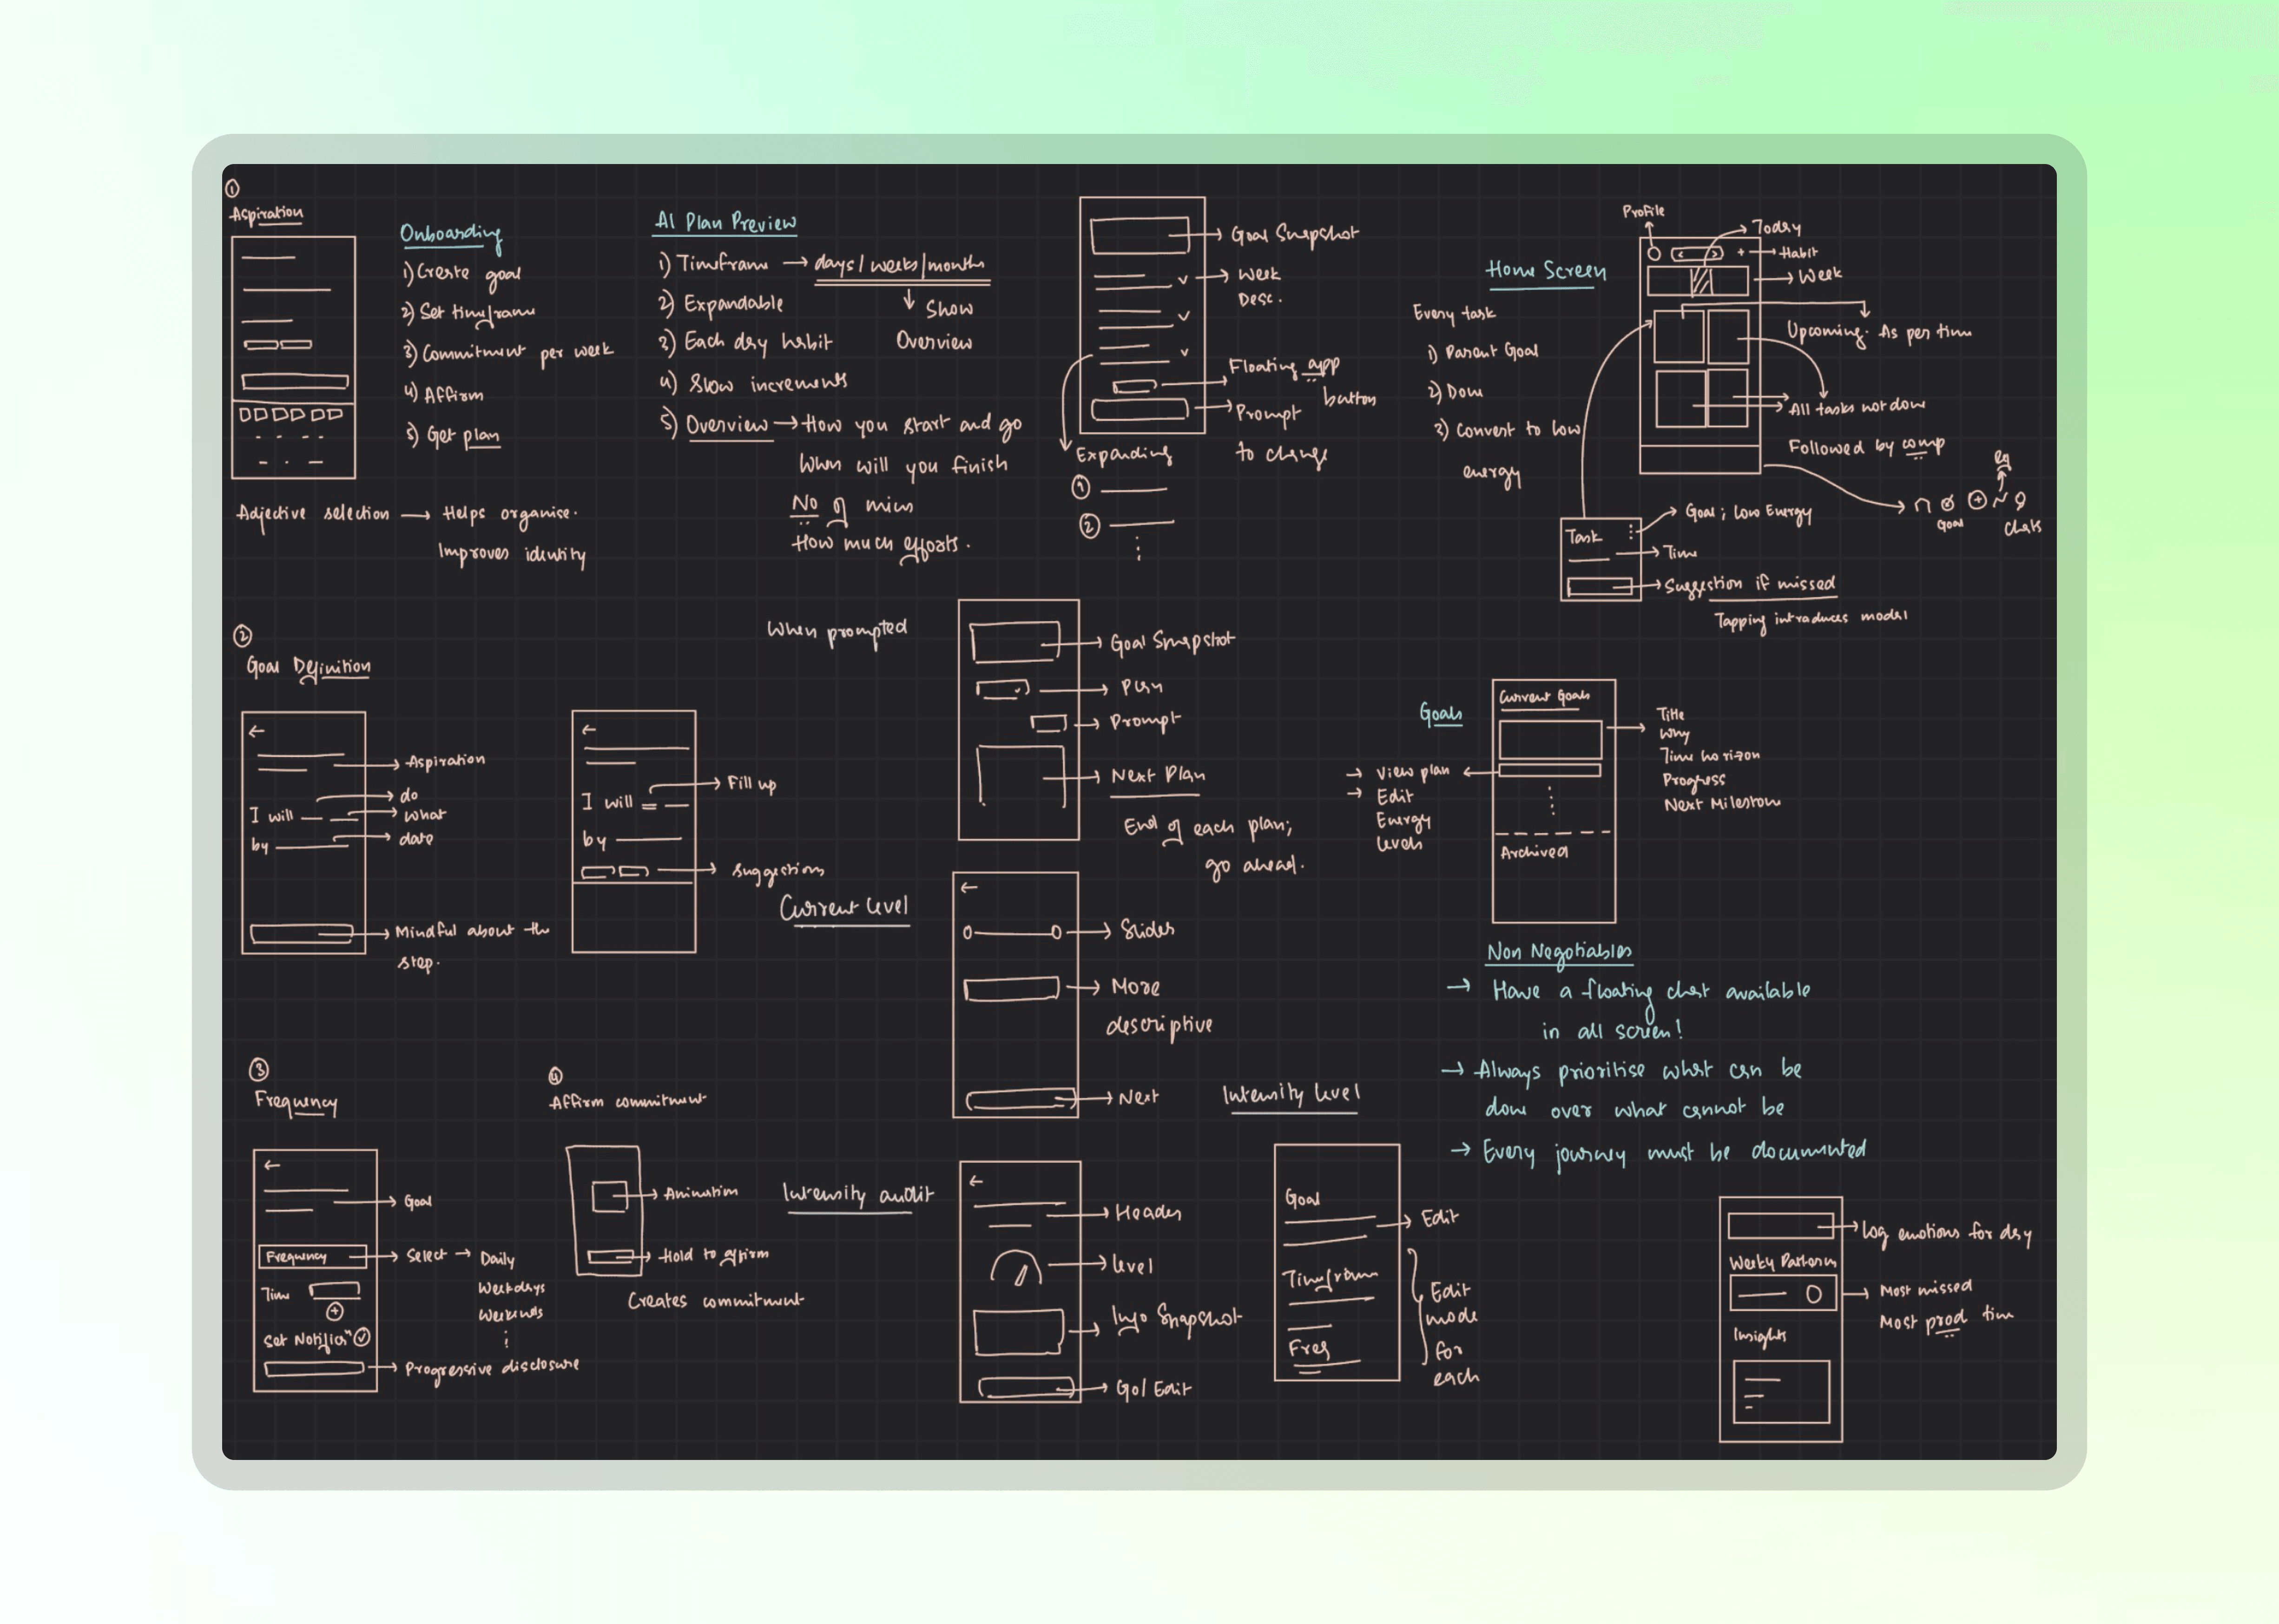 ①
Aspiration
Onboarding
1) Create goal
2) Set timeframe
3) Commitment per week
4) Affirm
5) Get plan
Adjective selection → Helps organise.
Improves identity
AI Plan Preview
1) Timeframe → days/weeks/months
↓ Show
Overview
2) Expandable
3) Each day habit
4) Slow increments
5) Overview → How you start and go
When will you finish
No of mins
How much efforts.
Goal Snapshot
Week
Desc.
Floating app
button
Prompt
to change
Expanding
①
②
Home Screen
Every task
1) Parent Goal
2) Done
3) Convert to low
energy
Profile
Today
+ Habit
Week
Upcoming. As per time
All tasks not done
Followed by comp
Goal
Chats
Task
Goal; Low Energy
Time
Suggestion if missed
Tapping introduces modal
②
Goal Definition
Aspiration
I will
do
what
by
date
Mindful about the
step.
I will
Fill up
by
Suggestions
When prompted
Goal Snapshot
Plan
Prompt
Next Plan
End of each plan;
go ahead.
Current level
Slider
More
descriptive
Next
Goals
Current Goals
Title
Why
Time horizon
Progress
Next Milestone
→ View plan
→ Edit
Energy
levels
Archived
Non Negotiables
→ Have a floating chat available
in all screen!
→ Always prioritise what can be
done over what cannot be
→ Every journey must be documented
③
Frequency
Goal
Frequency
Select → Daily
Weekdays
Weekends
Time
Set Notific^n
Progressive disclosure
④
Affirm commitment
Animation
Hold to affirm
Creates commitment
Intensity audit
Header
Level
Info Snapshot
Go/Edit
Intensity level
Goal
Edit
Timeframe
Freq
Edit
mode
for
each
Log emotions for day
Weekly Patterns
Most missed
Most prod time
Insights